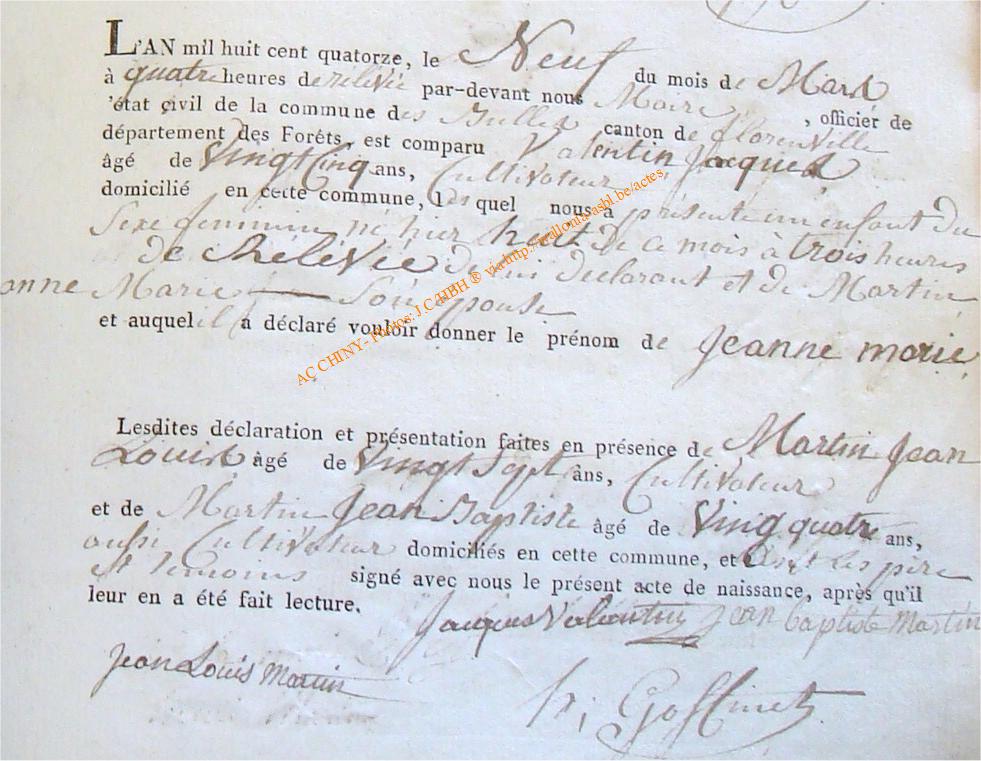 L'AN mil huit cent quatorze, le Neuf du mois de Mars
à quatre heures de relevée par-devant nous Maire, officier de
'état civil de la commune des Bulles canton de florenville
département des Forêts, est comparu Valentin Jacques
âgé de Vingt Cinq ans, Cultivateur
domicilié en cette commune, les quel nous a présenté un enfant du
Sexe feminin né hier huit de ce mois à trois heures
de Relevée de lui declarant et de Martin
anne Marie Son epouse
et auquel il a déclaré vouloir donner le prénom de Jeanne marie
Lesdites déclaration et présentation faites en présence de Martin Jean
Louis âgé de Vingt Sept ans, Cultivateur
et de Martin Jean Baptiste âgé de Ving quatre ans,
aussi Cultivateur domiciliés en cette commune, et ont les père
et temoins signé avec nous le présent acte de naissance, après qu'il
leur en a été fait lecture.
Jacques Valentin Jean baptiste Martin
Jean Louis Martin
Goffinet
AC CHINY- Photos: J.C/HBH ® via http://wallonia-asbl.be/actes